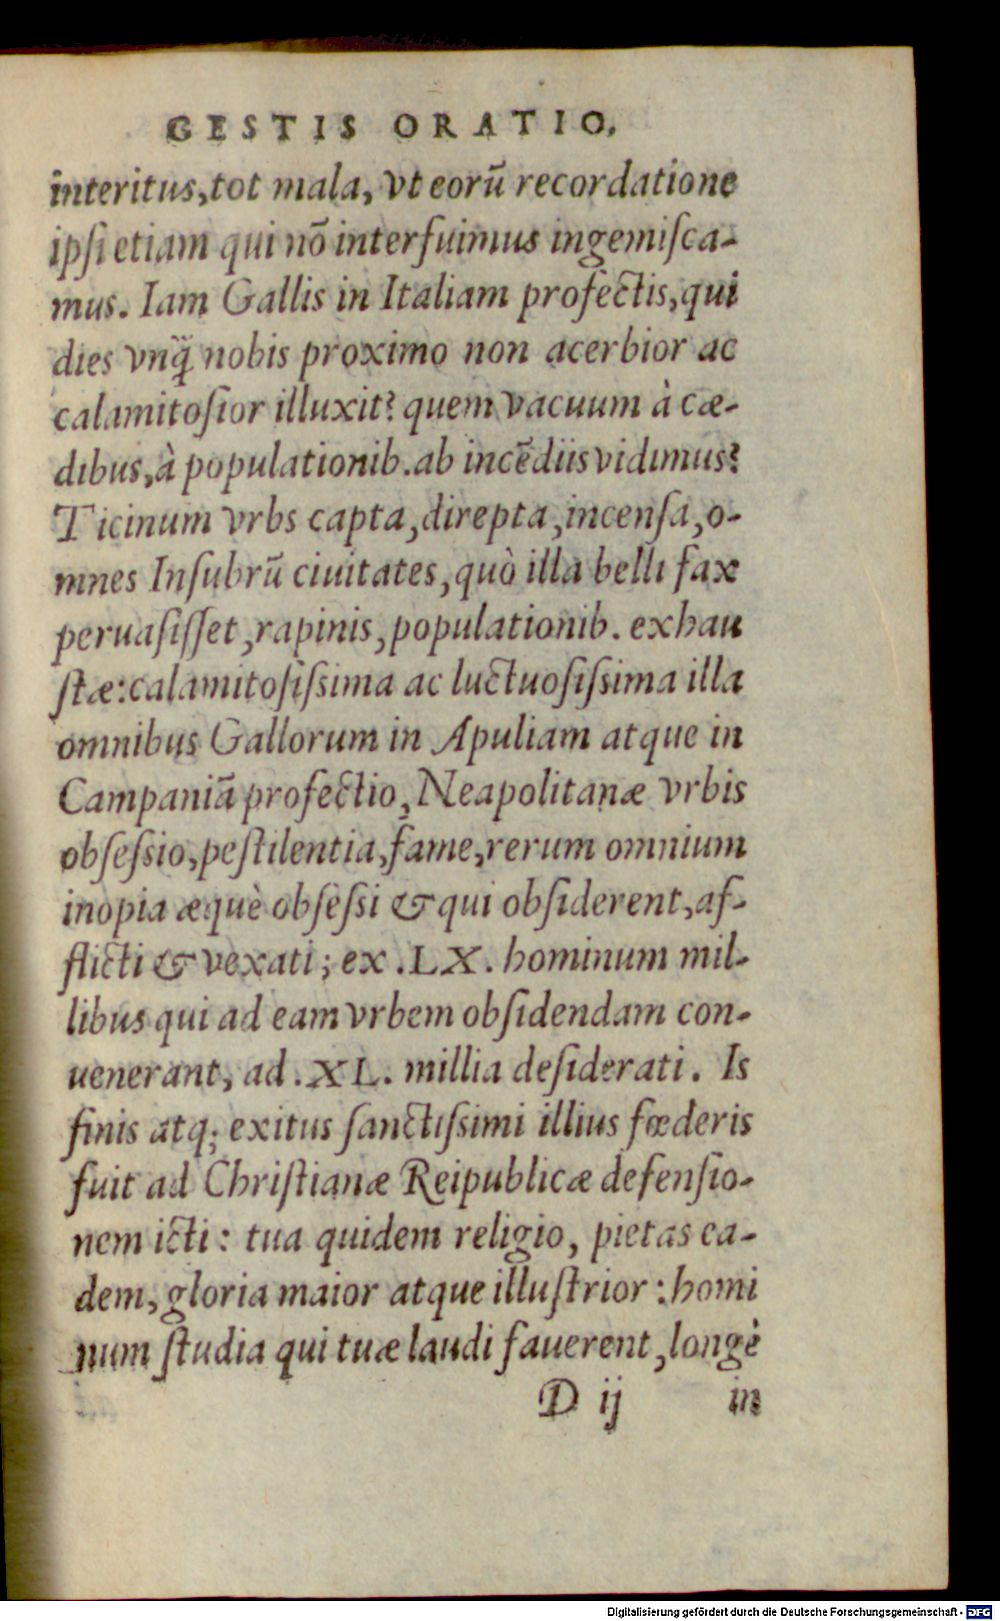 GESTIS ORATIO.
interitus, tot mala, vt eorū recordatione
ipſi etiam qui nō interfuimus ingemiſca-
mus. Iam Gallis in Italiam profectis, qui
dies vnq̈ nobis proximo non acerbior ac
calamitoſior illuxit? quem vacuum à cæ-
dibus, à populationib. ab incēdiis vidimus?
Ticinum vrbs capta, direpta, incenſa, o-
mnes Inſubrū ciuitates, quò illa belli fax
peruaſiſſet, rapinis, populationib. exhau
ſtæ: calamitoſiſsima ac luctuoſiſsima illa
omnibus Gallorum in Apuliam atque in
Campaniā profectio, Neapolitanæ vrbis
obſeſsio, peſtilentia, fame, rerum omnium
inopia æquè obſeſsi & qui obſiderent, af-
flicti & vexati; ex .LX. hominum mil-
libus qui ad eam vrbem obſidendam con-
uenerant, ad .XL. millia deſiderati. Is
finis atq; exitus ſanctiſsimi illius fœderis
fuit ad Chriſtianæ Reipublicæ defenſio-
nem icti: tua quidem religio, pietas ea-
dem, gloria maior atque illuſtrior: homi
num ſtudia qui tuæ laudi fauerent, longè
D ij in
Digitalisierung gefördert durch die Deutsche Forschungsgemeinschaft - DFG